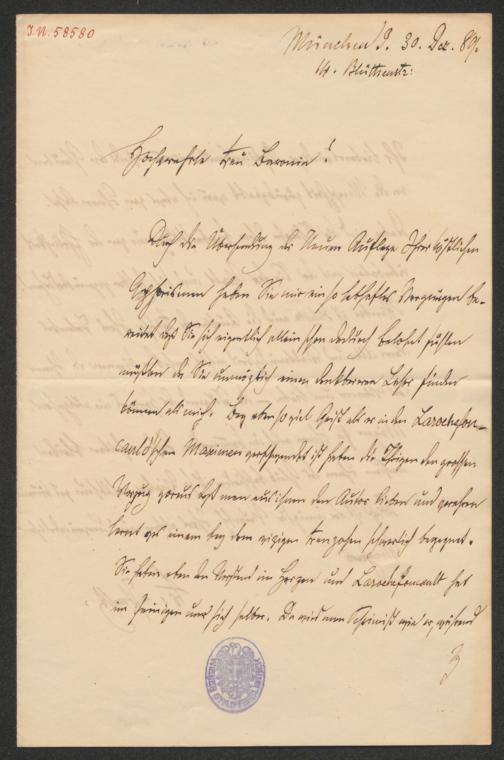 I.N. 58580
München d. 30. Dez. 89.
14. Blüthenstr:
Hochverehrte Frau Baronin!
Durch die Übersendung der Neuen Auflage Ihrer köstlichen
Aphorismen haben Sie mir ein so lebhaftes Vergnügen be-
reitet daß Sie sich eigentlich allein schon dadurch belohnt fühlen
müßten da Sie unmöglich einen dankbareren Leser finden
können als mich. Bey eben so viel Geist als er in den Larochefou-
cauld'schen Maximen verschwendet ist haben die Ihrigen den grossen
Vorzug voraus daß man aus ihnen den Autor lieben und verehren
lernt was einem bey dem eisigen Franzosen schwerlich begegnet.
Sie haben eben den Verstand im Herzen und Larochefoucault hat
im Seinigen nur sich selber. Da wird man Pessimist wie er, während